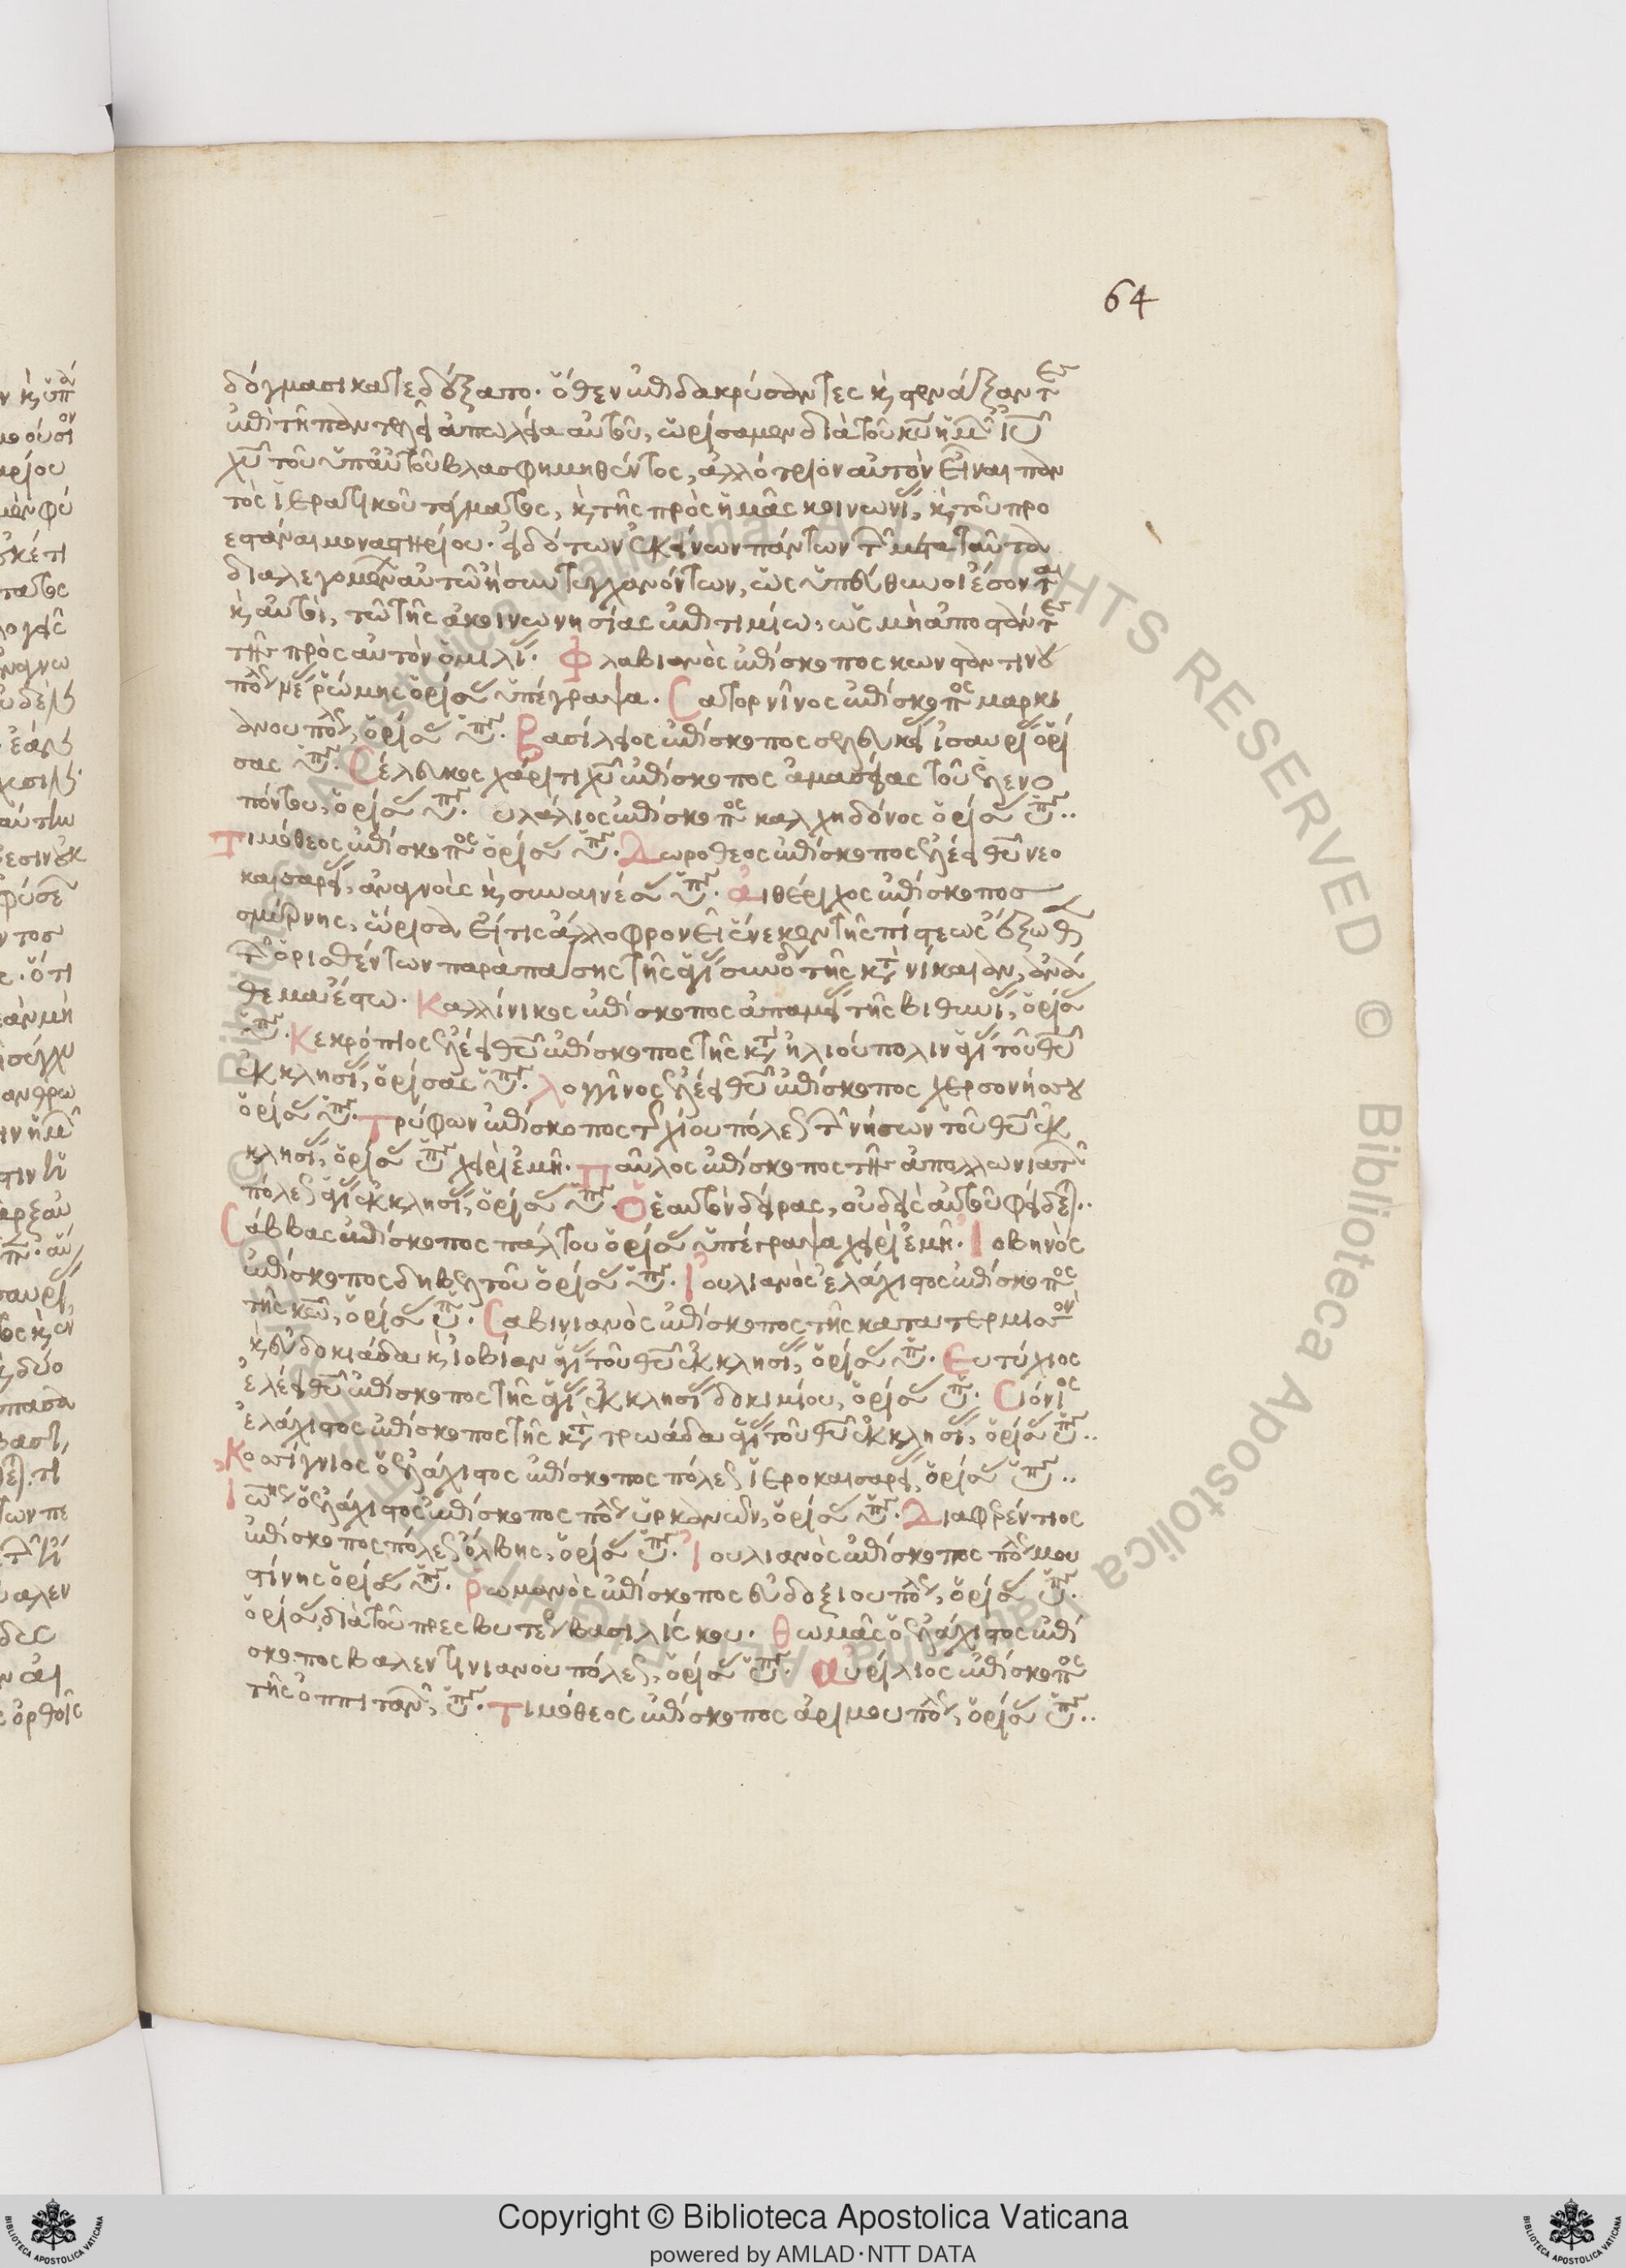 64
δόγμασι κατεδέξατο· ὅθεν ἐπιδακρύσαντες κ στενάξαντες
ἐπὶ τῆ παντελεῖ ἀπωλεία αὐτοῦ, ὡρίσαμεν διὰ τοῦ κυ ἡμῶν ιυ
χυ τοῦ ὑπ' αὐτοῦ βλασφημηθέντος, ἀλλότριον αὐτὸν εἶναι παν
τὸς ἱερατικοῦ τάγματος, κ τῆς πρὸς ἡμᾶς κοινωνίας, κ τοῦ προ
εστάναι μοναστηρίου· εἰδότων ἐκείνων πάντων τῶν μετὰ ταῦτα
διαλεγομένων αὐτῶ ἢ συντυγχανόντων, ὡς ὑπεύθυνοι ἔσονται
κ αὐτοὶ, τῶ τῆς ἀκοινωνησίας ἐπιτιμίω, ὡς μὴ ἀποστάντες
τῆς πρὸς αὐτὸν ὁμιλίας· Φλαβιανὸς ἐπίσκοπος κωνσταντινου
πόλεως νέας ῥώμης ὁρίσας ὑπέγραψα. Σατορνῖνος ἐπίσκοπος μαρκι
ανουπόλεως, ὁρίσας ὑπ. Βασίλειος ἐπίσκοπος σελευκείας ἰσαυρίας ὁρί
σας ὑπ. Σέλευκος χάριτι χυ ἐπίσκοπος ἀμασείας τοῦ ἑλενο
πόντου, ὁρίσας ὑπ. υλάλιος ἐπίσκοπος καλχηδόνος ὁρίσας ὑπ..
Τιμόθεος ἐπίσκοπος ὁρίσας ὑπ. Δωρόθεος ἐπίσκοπος ἐλέει θυ νεο
καισαρείας, ἀναγνοὺς κ συναινέσας ὑπ. Αἰθέριχος ἐπίσκοπος
σμύρνης, ὥρισα εἴ τις ἄλλο φρονεῖ ἕνεκεν τῆς πίστεως ἔξωθεν
τῶν ὁρισθέντων παρὰ πάσης τῆς ἁγίας συνόδου τῆς κατὰ νίκαιαν, ἀνά
θεμα ἔστω. Καλλίνικος ἐπίσκοπος ἀπαμείας τῆς βιθυνίας, ὁρίσας
ὑπ. Κεκρόπιος ἐλέει θυ ἐπίσκοπος τῆς κατὰ ἡλιούπολιν ἁγίας τοῦ θυ
ἐκκλησίας, ὁρίσας ὑπ. Λογγῖνος ἐλέει θυ ἐπίσκοπος χερσονήσου
ὁρίσας ὑπ. Τρύφων ἐπίσκοπος τῆς χίου πόλεως τῶν νήσων τοῦ θυ ἐκ
κλησίας, ὁρίσας ὑπ χειρὶ ἐμῆ. Παῦλος ἐπίσκοπος τῆς ἀπολλωνιατῶν
πόλεως ἁγίας ἐκκλησίας, ὁρίσας ὑπ. Ὁ ἑαυτὸν δείρας, οὐδεὶς αὐτοῦ φείδεται..
Σάββας ἐπίσκοπος πάλτου ὁρίσας ὑπέγραψα χειρὶ ἐμῆ. Ἰοβηνὸς
ἐπίσκοπος δηβελτοῦ ὁρίσας ὑπ. Ἰουλιανὸς ἐλάχιστος ἐπίσκοπος
τῆς κῶ, ὁρίσας ὑπ. Σαβινιανὸς ἐπίσκοπος τῆς κατὰ τερμισον
κ εὐδοκιάδα κ ἰοβίαν ἁγίας τοῦ θυ ἐκκλησίας, ὁρίσας ὑπ. Εὐτύχιος
ἐλέει θυ ἐπίσκοπος τῆς ἁγίας ἐκκλησίας δοκιμίου, ὁρίσας ὑπ. Πιόνιος
ἐλάχιστος ἐπίσκοπος τῆς κατὰ τρωάδα ἁγίας τοῦ θυ ἐκκλησίας, ὁρίσας ὑπ..
Κοσσίνιος ὁ ἐλάχιστος ἐπίσκοπος πόλεως ἱεροκαισαρείας, ὁρίσας ὑπ..
Ἰωάννης ὁ ἐλάχιστος ἐπίσκοπος πόλεως ὑρκανῶν, ὁρίσας ὑπ. Διαφερέντιος
ἐπίσκοπος πόλεως ὄλβης, ὁρίσας ὑπ. Ἰουλιανὸς ἐπίσκοπος πόλεως μου
στίνης ὁρίσας ὑπ. Ρωμανὸς ἐπίσκοπος εὐδοξιουπόλεως, ὁρίσας ὑπ.
ὁρίσας διὰ τοῦ πρεσβυτέρου βασιλίσκου. Θωμᾶς ὁ ἐλάχιστος ἐπί
σκοπος βαλεντινιανουπόλεως, ὁρίσας ὑπ. Αὐρίλιος ἐπίσκοπος
τῆς ὀππιτανῶν, ὑπ. Τιμόθεος ἐπίσκοπος πόλεως, ὁρίσας ὑπ..
© Biblioteca Apostolica Vaticana ALL RIGHTS RESERVED © Biblioteca Apostolica Vaticana ALL RIGHTS RESERVED
Copyright © Biblioteca Apostolica Vaticana
powered by AMLAD·NTT DATA